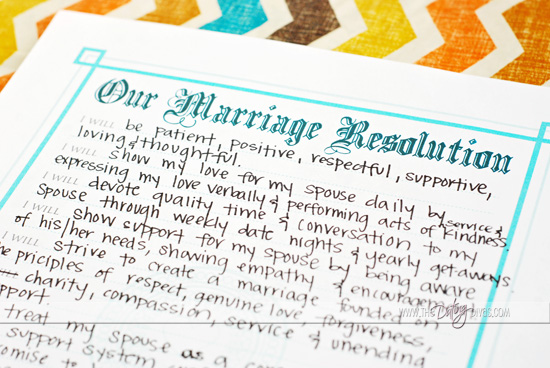 Our Marriage Resolution
I WILL be patient, positive, respectful, supportive,
loving & thoughtful.
I WILL show my love for my spouse daily by service &
expressing my love verbally & performing acts of kindness.
I WILL devote quality time & conversation to my
spouse through weekly date nights & yearly getaways.
I WILL show support for my spouse by being aware
of his/her needs, showing empathy & encouragement
I WILL strive to create a marriage founded on
the priciples of respect, genuine love, forgiveness,
charity, compassion, service & unending
support.
treat my spouse as a
support system
promise to
WWW.THE Dating DIVAS.COM